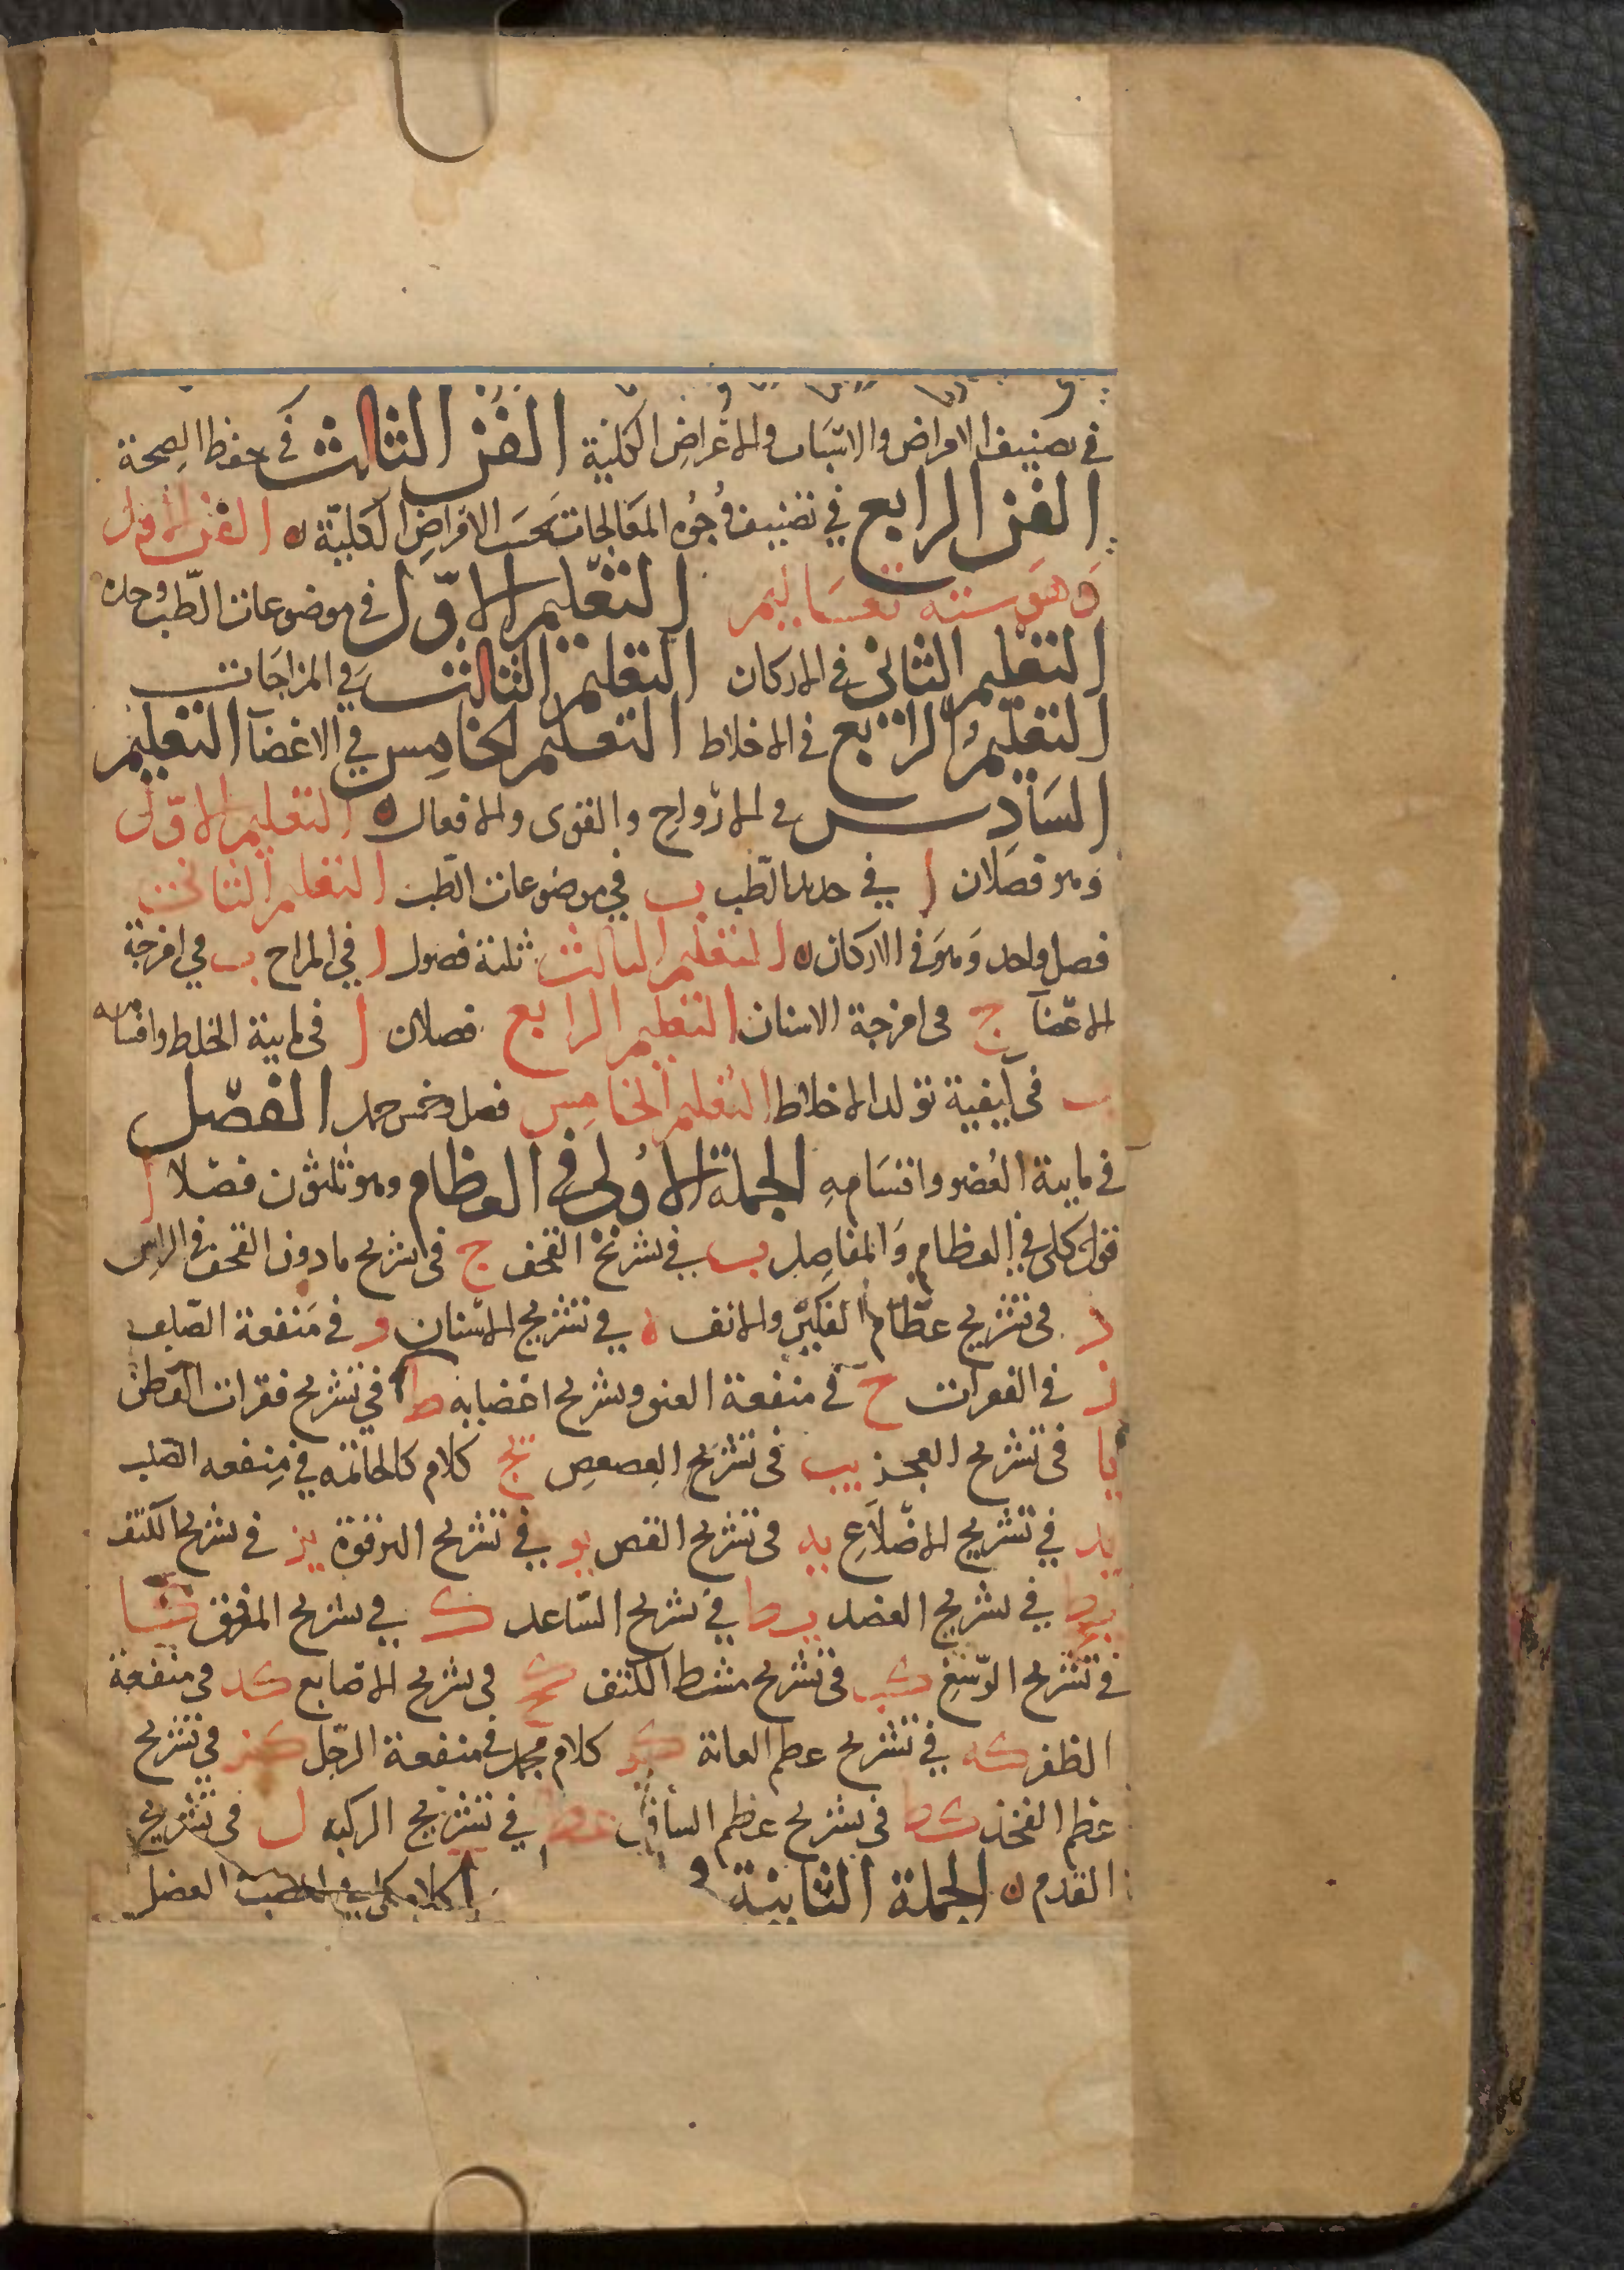 في تصنيف الامراض والاسباب والاعراض الكلية الفن الثالث في حفظ الصحة
الفن الرابع في تصنيف وجوه المعالجات بحسب الامراض الكلية ه الفن الاول
وهو ستة تعاليم التعليم الاول في موضوعات الطب وحده
التعليم الثاني في الاركان التعليم الثالث في المزاجات
التعليم الرابع في الاخلاط التعليم الخامس في الاعضآ التعليم
السادس في الارواح والقوى والافعال ه التعليم الاول
وهو فصلان ا في حد الطب ب في موضوعات الطب التعليم الثاني
فصل واحد وهو في الاركان ه التعليم الثالث ثلثة فصول ا في المزاج ب في امزجة
الاعضآ ج في امزجة الاسنان التعليم الرابع فصلان ا في ماهية الخلط واقسامه
ب في كيفية تولد الاخلاط التعليم الخامس فصل وخمس جمل الفصل
في ماهية العضو واقسامه الجملة الاولى في العظام وهو ثلثون فصلا ا
قول كلي في العظام والمفاصل ب في تشريح القحف ج في تشريح مادون القحف في الراس
د في تشريح عظام الفكين والانف ه في تشريح الاسنان و في منفعة الصلب
ز في الفقرات ح في منفعة العنق وتشريح اعضابه ط في تشريح فقرات القطن
يا في تشريح العجز يب في تشريح العصعص يج كلام كالخاتمه في منفعه الصلب
يد في تشريح الاضلاع يه في تشريح القص يو في تشريح الترقوة يز في تشريح الكتف
في تشريح العضد يط في تشريح الساعد ك في تشريح المرفق كا
في تشريح الرسغ كب في تشريح مشط الكتف كج في تشريح الاصابع كد في منفعة
الظفر كه في تشريح عظم العانة كو كلام مجمل في منفعة الرجل كز في تشريح
عظم الفخذ كط في تشريح عظم الساق في تشريح الركبه ل في تشريح
القدم ه الجملة الثانية كلام كلي في العصب العضل